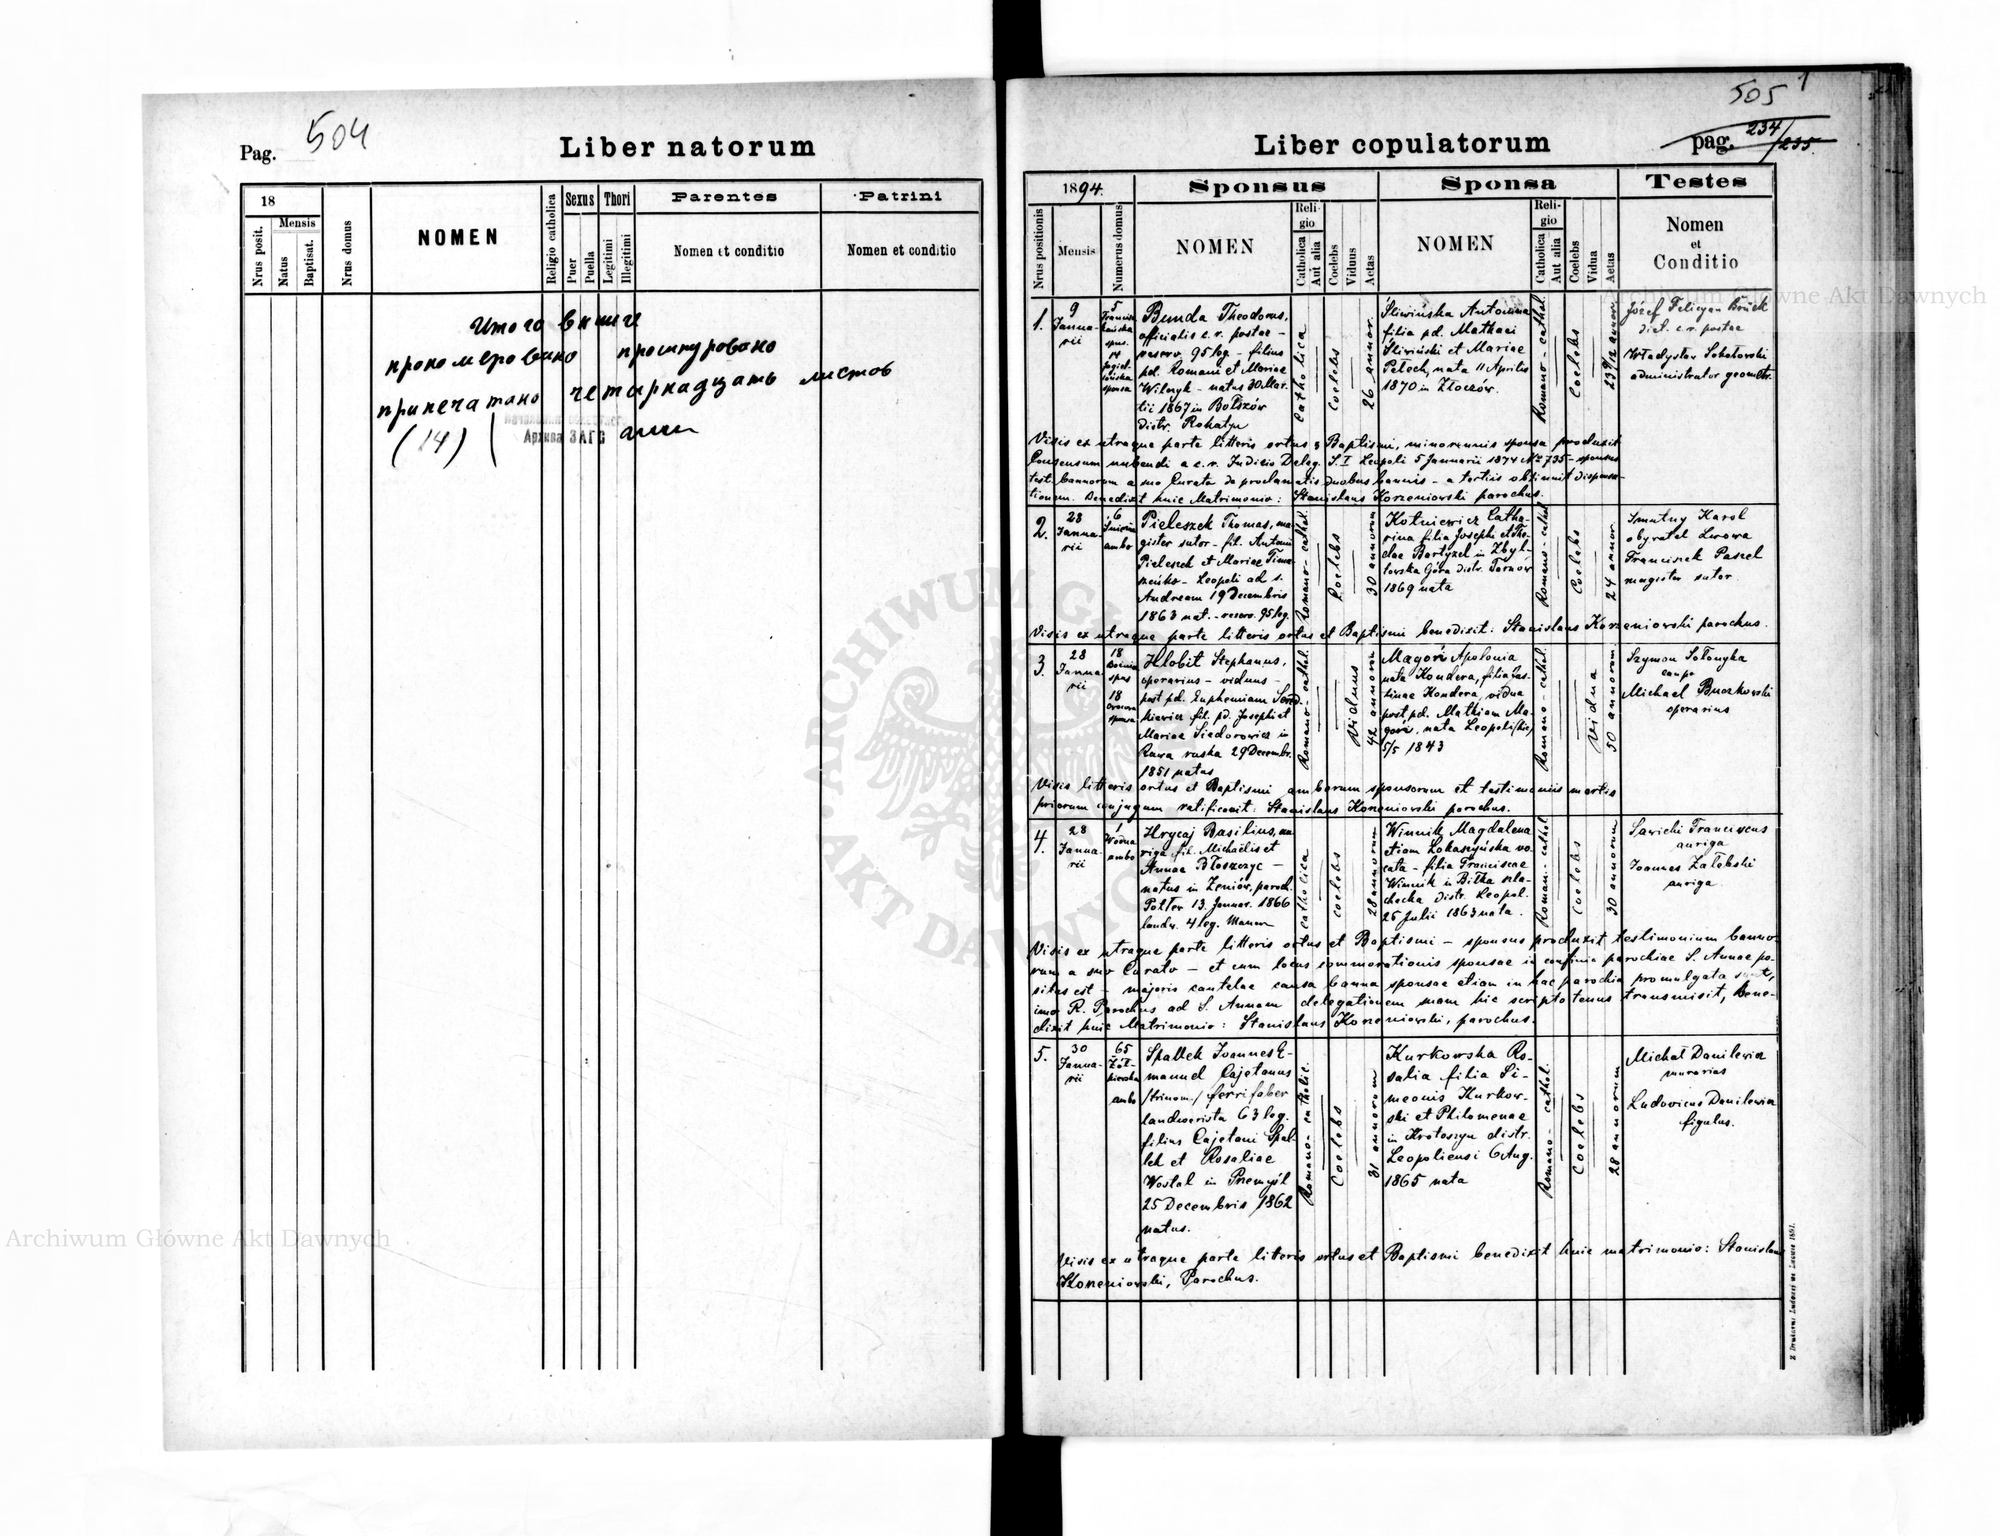 Pag. 504
Liber natorum
18
Mensis
Nrus posit.
Natus
Baptisat.
Nrus domus
NOMEN
Religio catholica
Sexus
Puer
Puella
Thori
Legitimi
Illegitimi
Parentes
Nomen et conditio
Patrini
Nomen et conditio
прономеровано прошнуровано
припечатано четырнадцать листов
(14)
Архива ЗАГС
505 1
Liber copulatorum
pag. 234/235.
1894.
Sponsus
Sponsa
Testes
Nrus positionis
Mensis
Numerus domus
NOMEN
Religio
Catholica
Aut alia
Coelebs
Viduus
Aetas
NOMEN
Religio
Catholica
Aut alia
Coelebs
Vidua
Aetas
Nomen
et
Conditio
1.
9
Janua-
rii
5
Bunda Theodorus,
officialis c. r. postae -
reserv. 95 leg. - filius
pd. Romani et Mariae
Wilnyk - natus 30 Mar-
tii 1867 in Bolszów
distr. Rohatyn
Catholica
Coelebs
26 annor.
Śliwińska Antonina
filia pd. Mathaei
Śliwiński et Mariae
Petech, nata 11 Aprilis
1870 in Złoczów.
Romano-cathol.
Coelebs
23 9/12 annor.
Józef Felicyan Brück
diet. c. r. postae
Władysław Sokołowski
administrator geometr.
Visis ex utraque parte litteris ortus & Baptismi, minorennis sponsa produxit
Consensum nubendi a c. r. Judicio Deleg. S. I Leopoli 5 Januarii 1874 № 735 - sponsus
test. bannorum a suo Curato de proclamatis duobus bannis - a tertiis obtinuit dispensa-
tionem. Benedixit huic Matrimonio: Stanislaus Korzeniowski parochus.
2.
28
Janua-
rii
6
ambo
Pieleszek Thomas, ma-
gister sutor - fil. Antonii
Pieleszek et Mariae
Leopoli ad s.
Andream 19 Decembris
1863 nat. - reserv. 95 leg.
Romano-cathol.
Coelebs
30 annorum
Kotniewicz Catha-
rina filia Josephi et The-
clae Bartyzel in Zbyl-
towska Góra distr. Tarnow
1869 nata
Romano-cathol.
Coelebs
24 annor.
Smutny Karol
obywatel Lwowa
Franciszek Paszel
magister sutor
Visis ex utraque parte litteris ortus et Baptismi benedixit: Stanislaus Korzeniowski parochus.
3.
28
Janua-
rii
18
spus
18
sponsa
Hlobit Stephanus,
operarius - viduus -
post pd. Euphemiam
fil. pd. Josephi et
Mariae Siedorowicz in
Rawa ruska 29 Decembr.
1851 natus
Romano-cathol.
Viduus
42 annorum
Magoń Apolonia
nata Kondera, filia Jus-
tinae Kondera, vidua
post pd. Mathiam Ma-
goń, nata Leopoli
5/5 1843
Romano-cathol.
Vidua
50 annorum
Szymon Sołonyka
Michael Buczkowski
operarius
Visis litteris ortus et Baptismi amborum sponsorum et testimoniis mortis
priorum conjugum ratificavit: Stanislaus Korzeniowski parochus.
4.
28
Janua-
rii
1
Wodna
ambo
Hrycaj Basilius, au-
riga fil. Michaelis et
Annae Błoszczyc -
natus in Zeniów, paroch.
Polter 13. Januar. 1866
landw. 4 leg.
Catholica
Coelebs
28 annorum
Winnik Magdalena
etiam Łokaszyńska vo-
cata - filia Franciscae
Winnik in Biłka szla-
checka distr. Leopol.
25 Julii 1863 nata.
Roman-cathol
Coelebs
30 annorum
Sawicki Franciscus
auriga
Joannes Załekski
auriga
Visis ex utraque parte litteris ortus et Baptismi - sponsus produxit testimonium banno-
rum a suo Curato - et cum locus commorationis sponsae in confinio parochiae S. Annae po-
situs est - majoris cautelae causa banna sponsae etiam in hac parochia promulgata sunt,
imo R. Parochus ad S. Annam delegationem suam hic scripto tenus transmisit, Bene-
dixit huic Matrimonio: Stanislaus Korzeniowski, parochus.
5.
30
Janua-
rii
65
Żół-
kiewska
ambo
Spallek Joannes E-
manuel Cajetanus
/trinom./ ferrifaber
landwerista 63 leg.
filius Cajetani Spal-
lek et Rosaliae
Wostal in Przemyśl
25 Decembris 1862
natus.
Romano-catholic.
Coelebs
31 annorum
Kurkowska Ro-
salia filia Si-
meonis Kurkow-
ski et Philomenae
in Krotoszyn distr.
Leopoliensi 6 Aug.
1865 nata
Romano-cathol.
Coelebs
28 annorum
Michał Danilewicz
murarius
Ludovicus Danilewicz
figulus.
Visis ex utraque parte litteris ortus et Baptismi benedixit huic matrimonio: Stanislaus
Korzeniowski, Parochus.
Z Drukarni Ludowej we Lwowie 1891.
ARCHIWUM GŁÓWNE AKT DAWNYCH
Archiwum Główne Akt Dawnych
Archiwum Główne Akt Dawnych